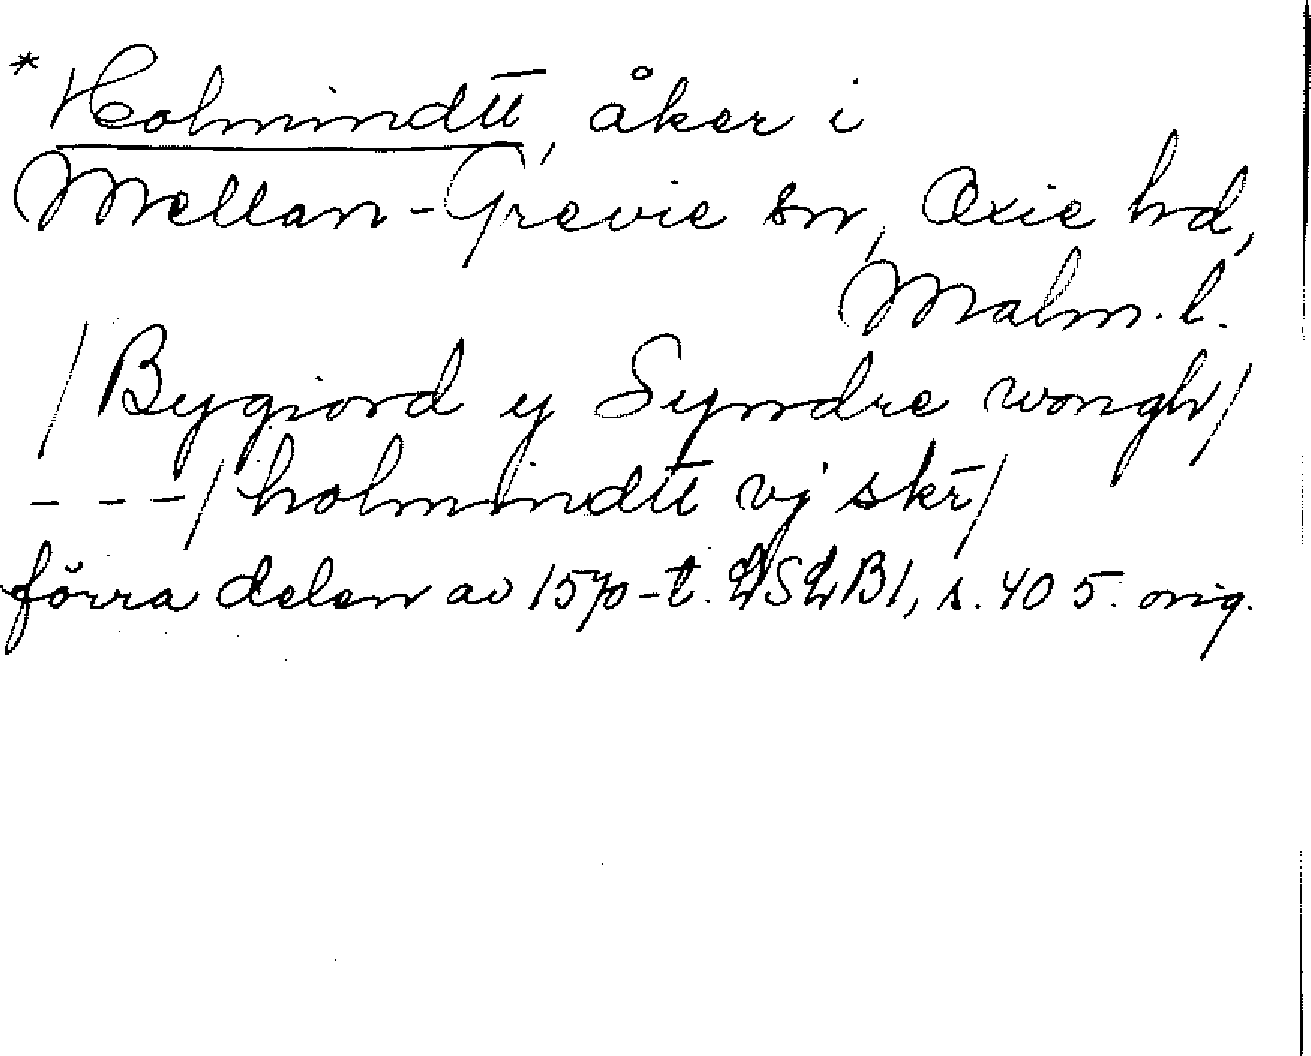 *Holmindtt, åker i
Mellan-Grevie sn, Oxie hd,
Malm. l.
/Bygiord y Syndre wongh/
---/holmindtt vj skr/
förra delen av 1570-t. LSLB1, s. 405. orig.